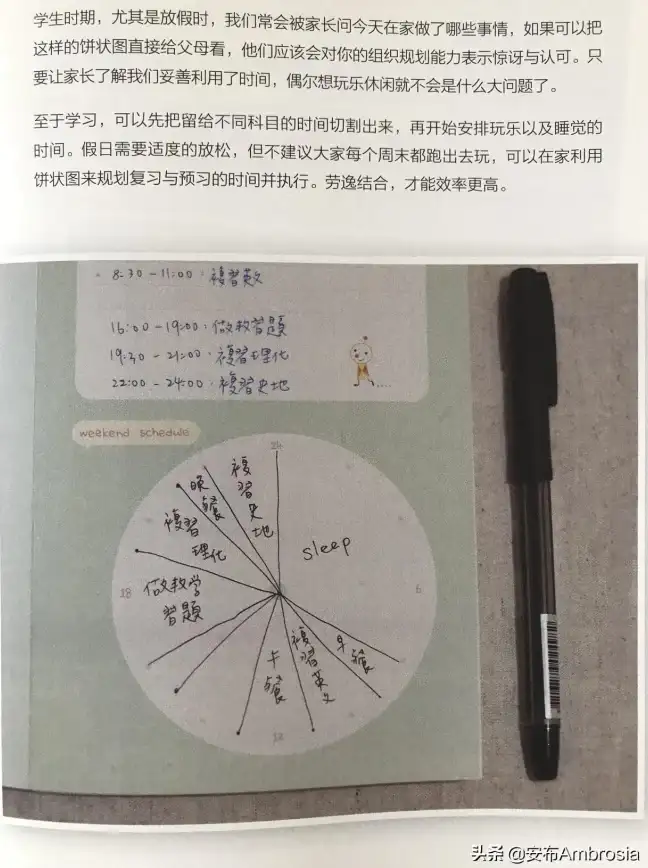 学生时期，尤其是放假时，我们常会被家长问今天在家做了哪些事情，如果可以把
这样的饼状图直接给父母看，他们应该会对你的组织规划能力表示惊讶与认可。只
要让家长了解我们妥善利用了时间，偶尔想玩乐休闲就不会是什么大问题了。
至于学习，可以先把留给不同科目的时间切割出来，再开始安排玩乐以及睡觉的
时间。假日需要适度的放松，但不建议大家每个周末都跑出去玩，可以在家利用
饼状图来规划复习与预习的时间并执行。劳逸结合，才能效率更高。
8:30-11:00:複習英文
16:00-19:00:做教習題
19:30-21:00:複習理化
22:00-24:00:複習史地
weekend schedule
24
複習史地
晚餐
複習
理化
sleep
18
做教学
習題
6
早餐
複習英文
午餐
12
头条 @安布Ambrosia